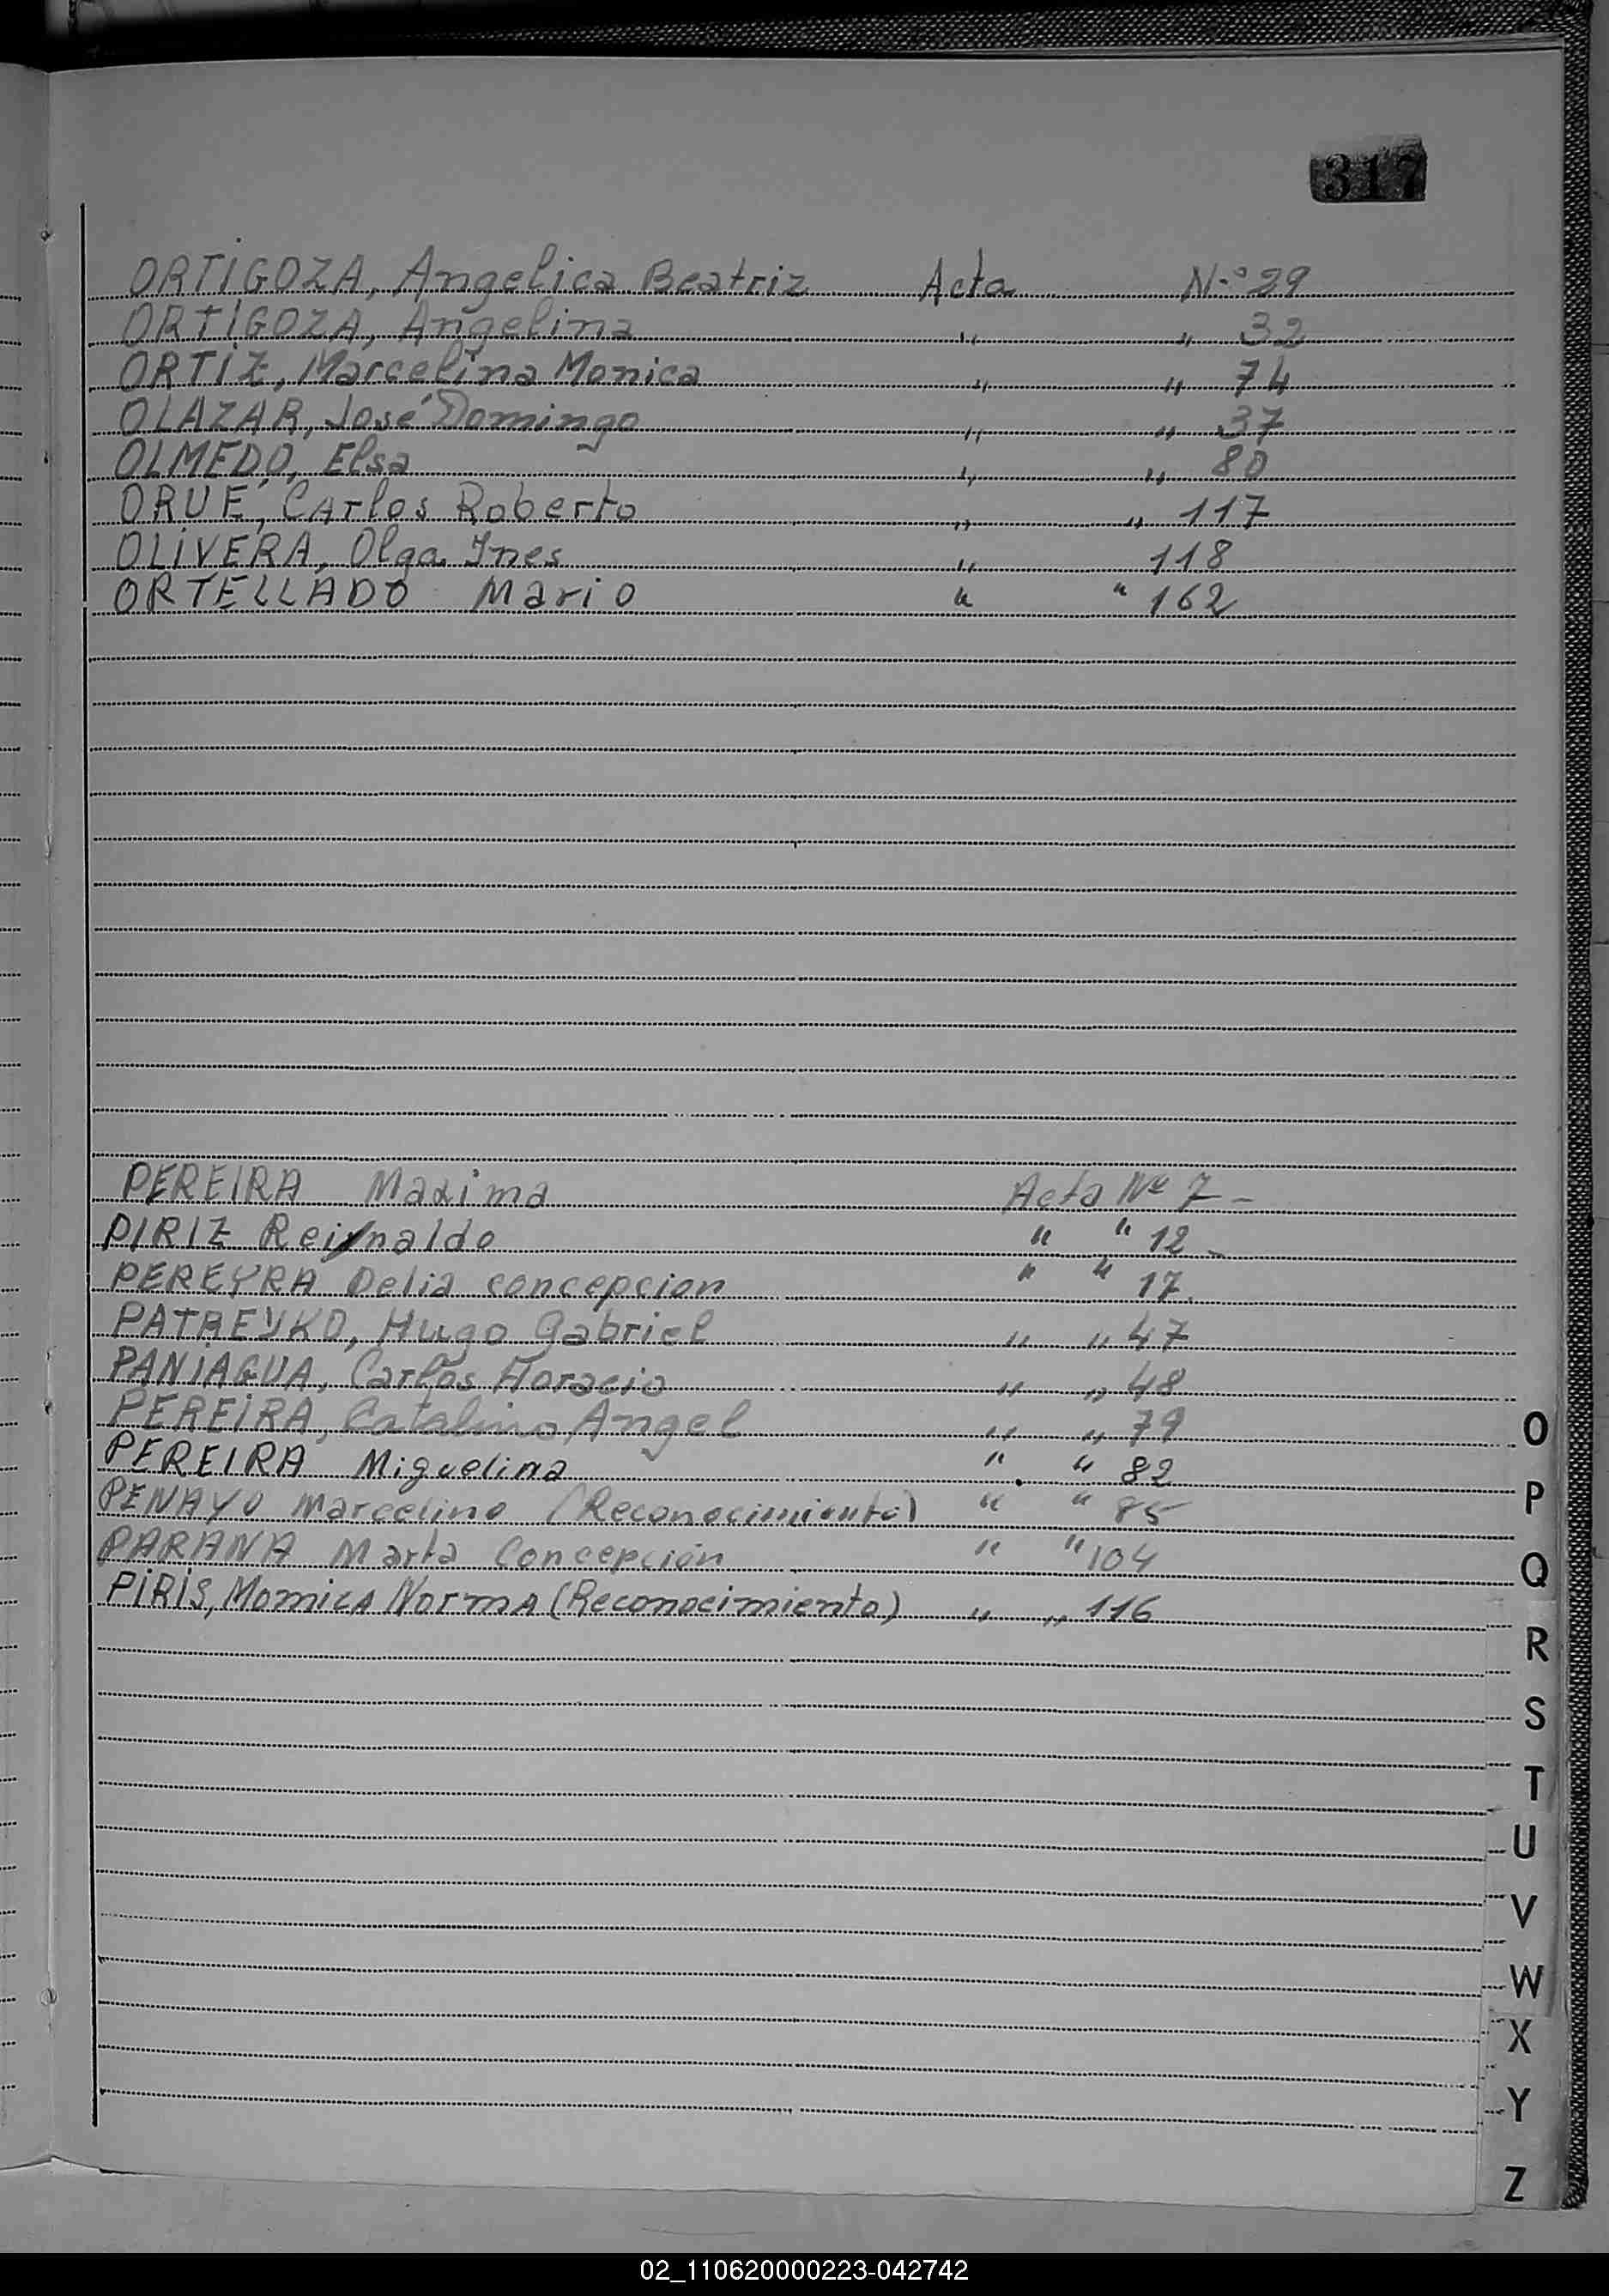 317
ORTIGOZA, Angelica Beatriz Acta N.º 29
ORTIGOZA, Angelina " " 32
ORTIZ, Marcelina Monica " " 74
OLAZAR, José Domingo " " 37
OLMEDO, Elsa " " 80
ORUÉ, Carlos Roberto " " 117
OLIVERA, Olga Ines " 118
ORTELLADO Mario " " 162
PEREIRA Maxima Acta Nº 7-
PIRIZ Reinaldo " " 12-
PEREYRA Delia concepcion " " 17.
PATREYKO, Hugo Gabriel " " 47
PANIAGUA, Carlos Horacio " " 48
PEREIRA, Catalino Angel " " 79
PEREIRA Miguelina " " 82
PENAYO Marcelino (Reconocimiento) " " 85
PARANA Marta Concepción " " 104
PIRIS, Momica Norma (Reconocimiento) " " 116
O
P
Q
R
S
T
U
V
W
X
Y
Z
02_110620000223-042742